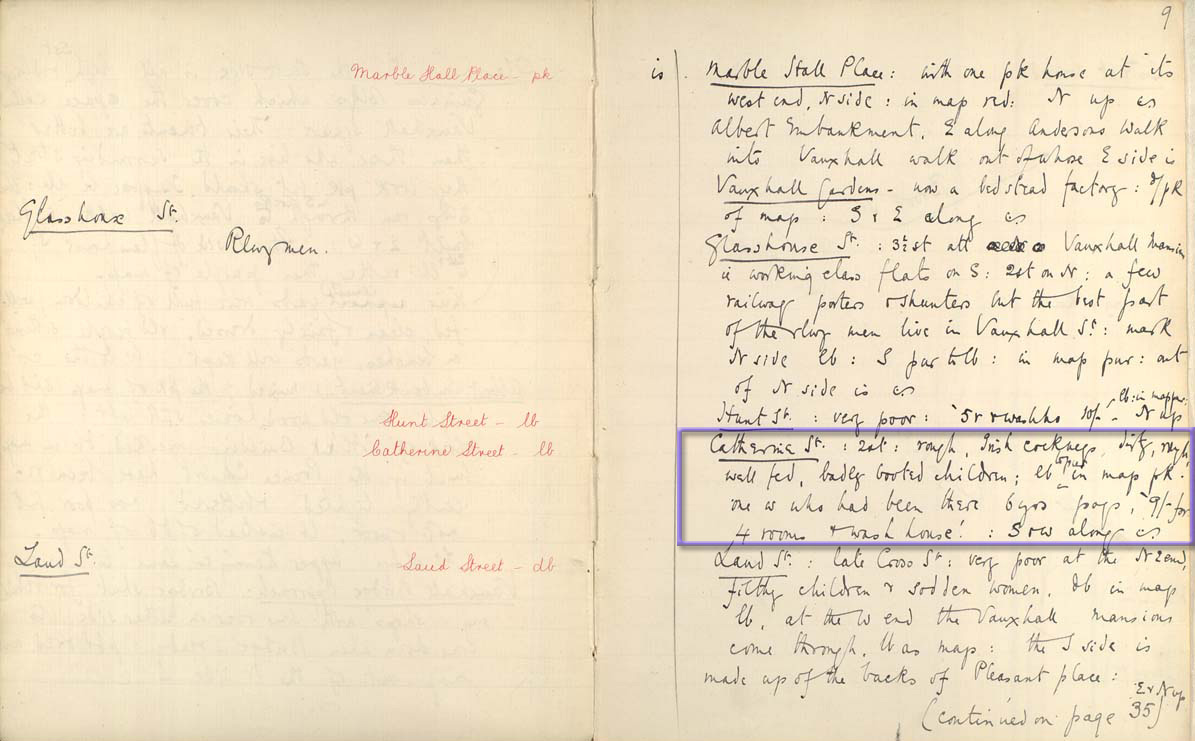 9
Marble Hall Place - pk
Glasshouse St.
Rlwymen.
Hunt Street - lb
Catherine Street - lb
Laud St.
Laud Street - db
is
Marble Hall Place: with one pk house at its
west end, N side: in map red: N up is
Albert Embankment, E along Andersons Walk
into Vauxhall walk out of whose E side is
Vauxhall Gardens - now a bedstead factory:
of map: S & E along is
Glasshouse St.: 3½ st att Vauxhall Mansions
is working class flats on S: 2st on N: a few
railway porters & shunters but the best part
of the rlwy men live in Vauxhall St: mark
N side lb: S pur to lb: in map pur: out
of N side is is
lb: in map pur:
Hunt St.: very poor: 5r & washho 10/- N up
Catherine St.: 2st: rough, Irish cockneys, dirty, rough,
well fed, badly booted children; lb to pur in map pk.
one is who had been there 6 yrs pays, "9/- for
4 rooms & wash house": S & W along is
Laud St.: late Cross St: very poor at the N E end,
filthy children & sodden women, db in map
lb, at the W end the Vauxhall mansions
come through, lb as map: the S side is
made up of the backs of Pleasant place:
E & N up
(continued on page 35)